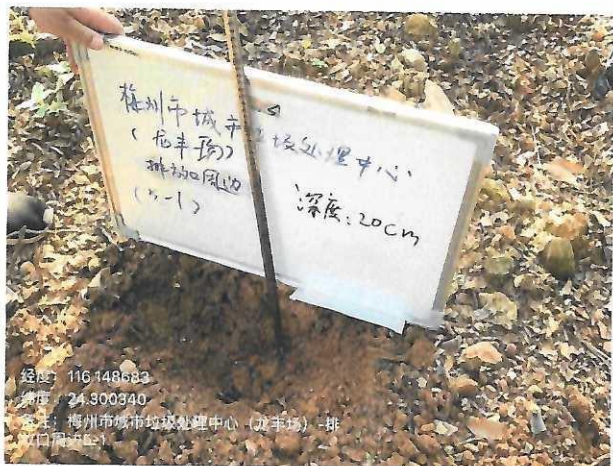 梅州市城市垃圾处理中心
(龙丰场)
排放口周边
(5-1)
深度:20cm
经度:116.148683
纬度:24.300340
备注:梅州市城市垃圾处理中心(龙丰场)-排
放口周边5-1